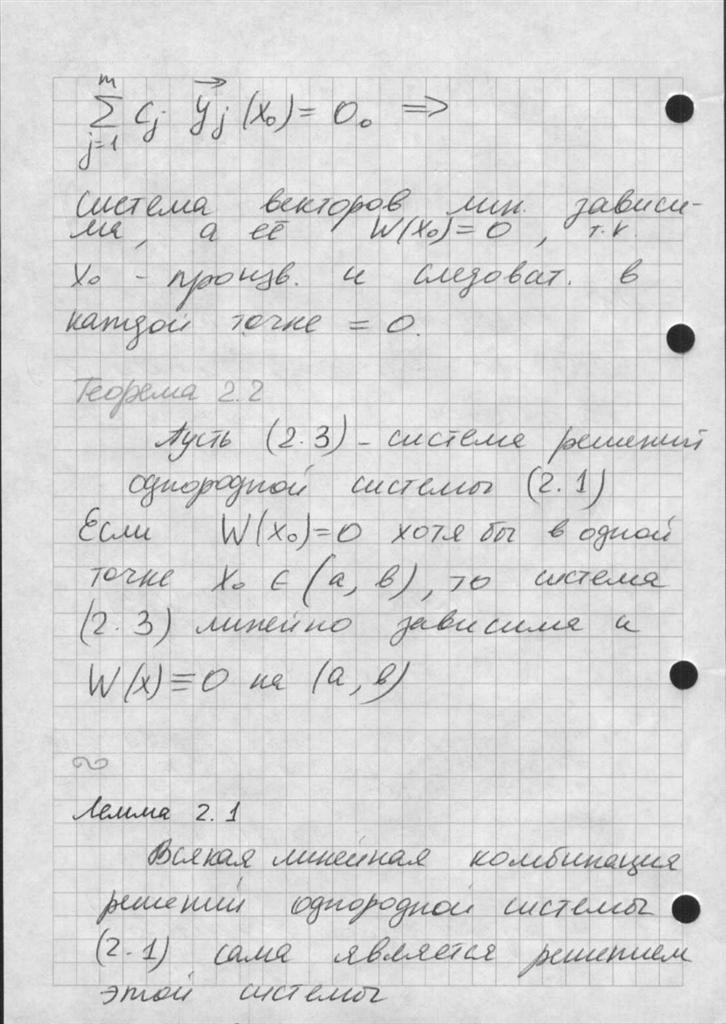 m
∑ Cj y⃗j (x₀) = 0₀ ⇒
j=1
система векторов лин. зависи-
ма, а её W(x₀)=0, т.к.
x₀ - произв. и следоват. в
каждой точке = 0.
Теорема 2.2
Пусть (2.3) - система решений
однородной системы (2.1)
Если W(x₀)=0 хотя бы в одной
точке x₀ ∈ (a, b), то система
(2.3) линейно зависима и
W(x)≡0 на (a, b)
Лемма 2.1
Всякая линейная комбинация
решений однородной системы
(2.1) сама является решением
этой системы